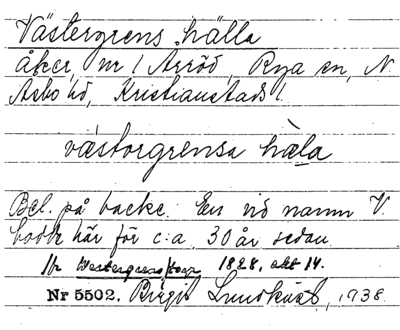 Västergrens hälla
åker, nr 1 Arröd, Rya sn, N.
Åsbo hd, Kristianstads l.
västorgrensa hæla
Bel. på backe. En vid namn V.
bodde här för c:a 30 år sedan.
1828, okt 14.
Nr 5502. Birgit Lundkvist, 1938.